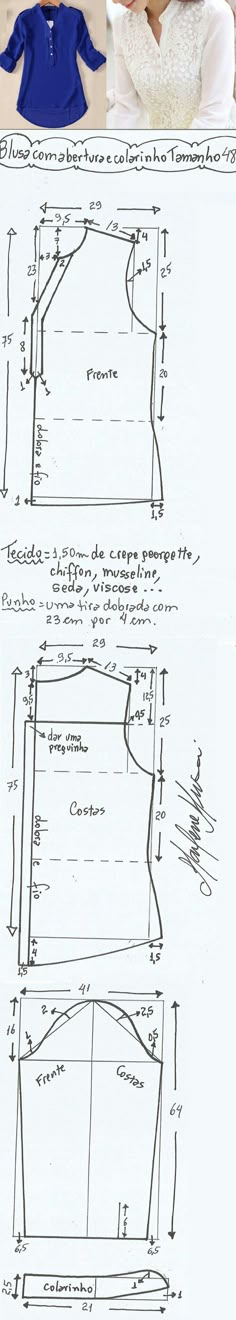 Blusa com abertura e colarinho Tamanho 48
29
9,5
13
4
7
3
2
23
4,5
25
75
8
Frente
20
1
1
dobra e fio
1
1,5
Tecido = 1,50m de crepe georgette,
chiffon, musseline,
seda, viscose ...
Punho = uma tira dobrada com
23 cm por 4 cm.
29
9,5
13
3
4
9,5
12,5
25
0,5
dar uma
preguinha
75
Costas
20
dobra e fio
4
1,5
1,5
Marlene Mukai
41
16
2
2,5
1
0,5
Frente
Costas
64
6
6,5
6,5
2,5
Colarinho
1
1
21